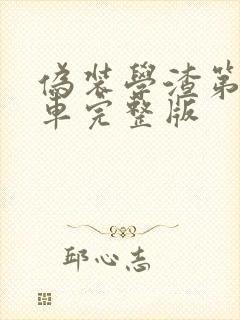 偽裝學渣第
車完整版
邱心志